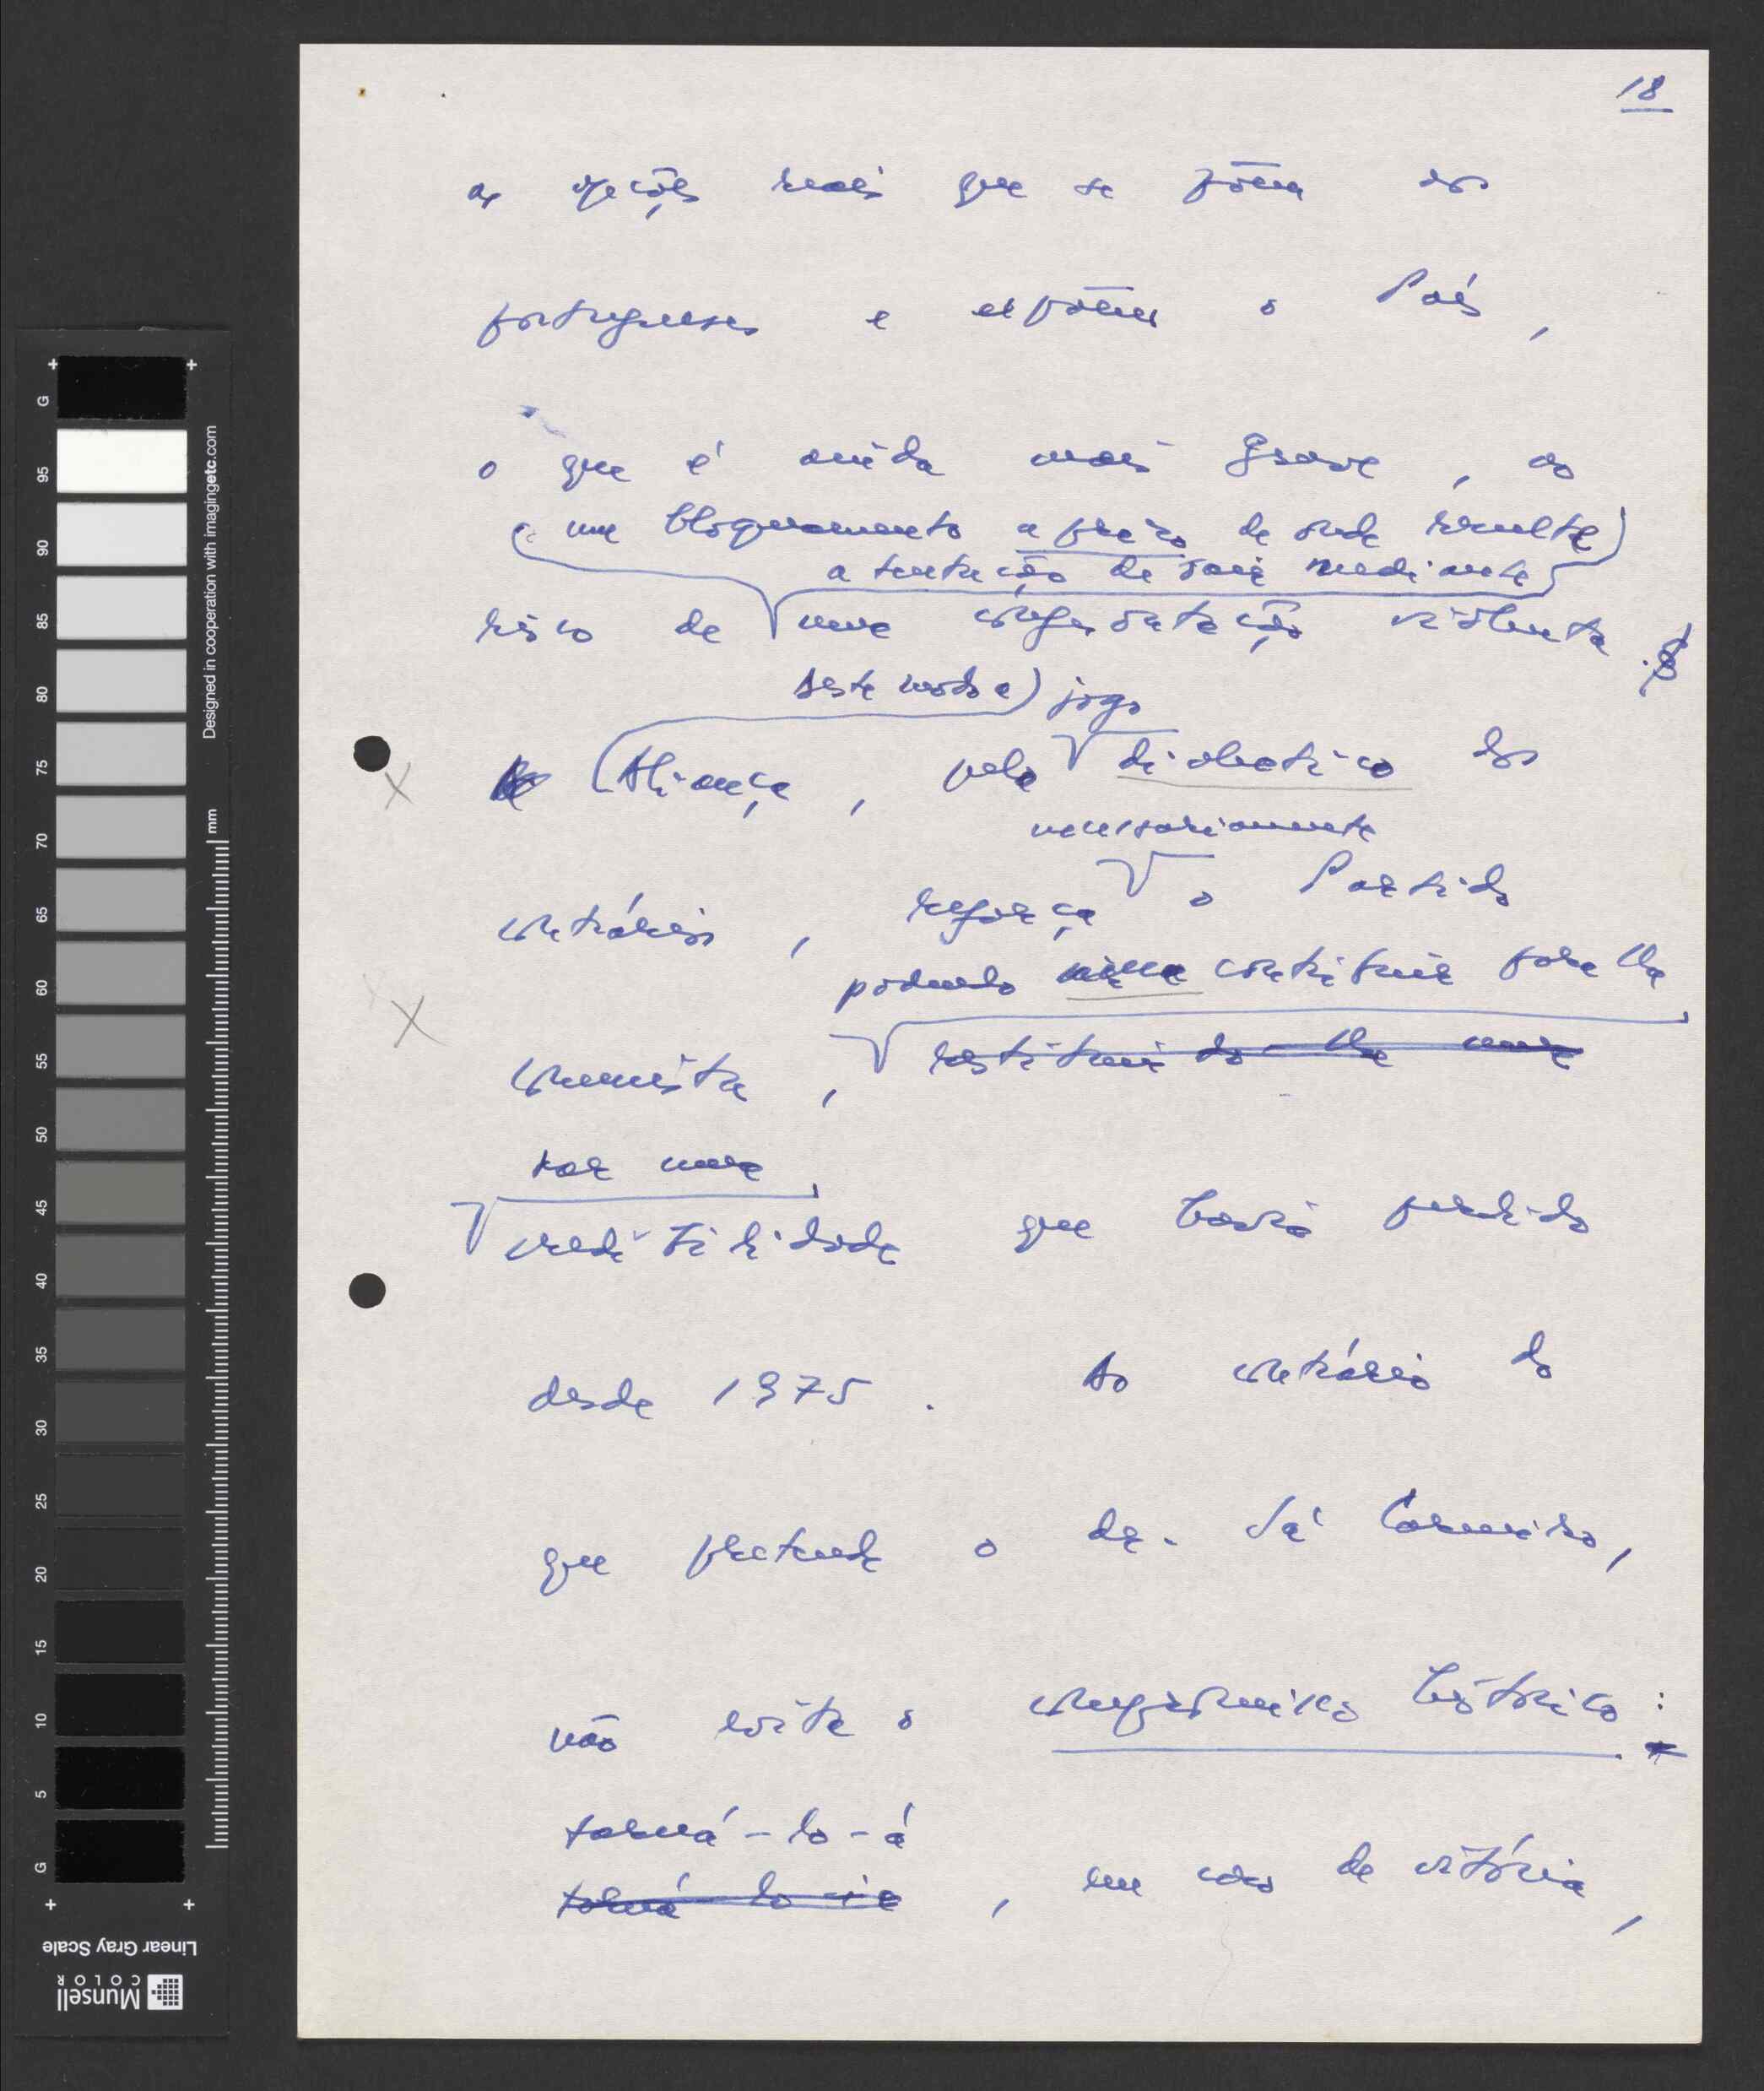 18
as opções reais que se põem aos
portugueses e expõem o País,
o que é ainda mais grave, ao
um bloqueamento a prazo de onde resulte
a tentação de sair mediante
risco de uma confrontação violenta.
deste modo a jogo
Aliança, pelo dialéctico dos
necessariamente
contrários, reforça o Partido
podendo contribuir para lhe
comunista, restituindo-lhe uma
dar uma
credibilidade que havia perdido
desde 1975. Ao contrário do
que pretende o dr. Sá Carneiro,
não evita o compromisso histórico:
torná-lo-á
torná-lo-ia, em caso de vitória,
G
95
90
85
80
75
70
65
60
55
50
45
40
35
30
25
20
15
10
5
G
mm
Designed in cooperation with imagingetc.com
Linear Gray Scale
Munsell
COLOR